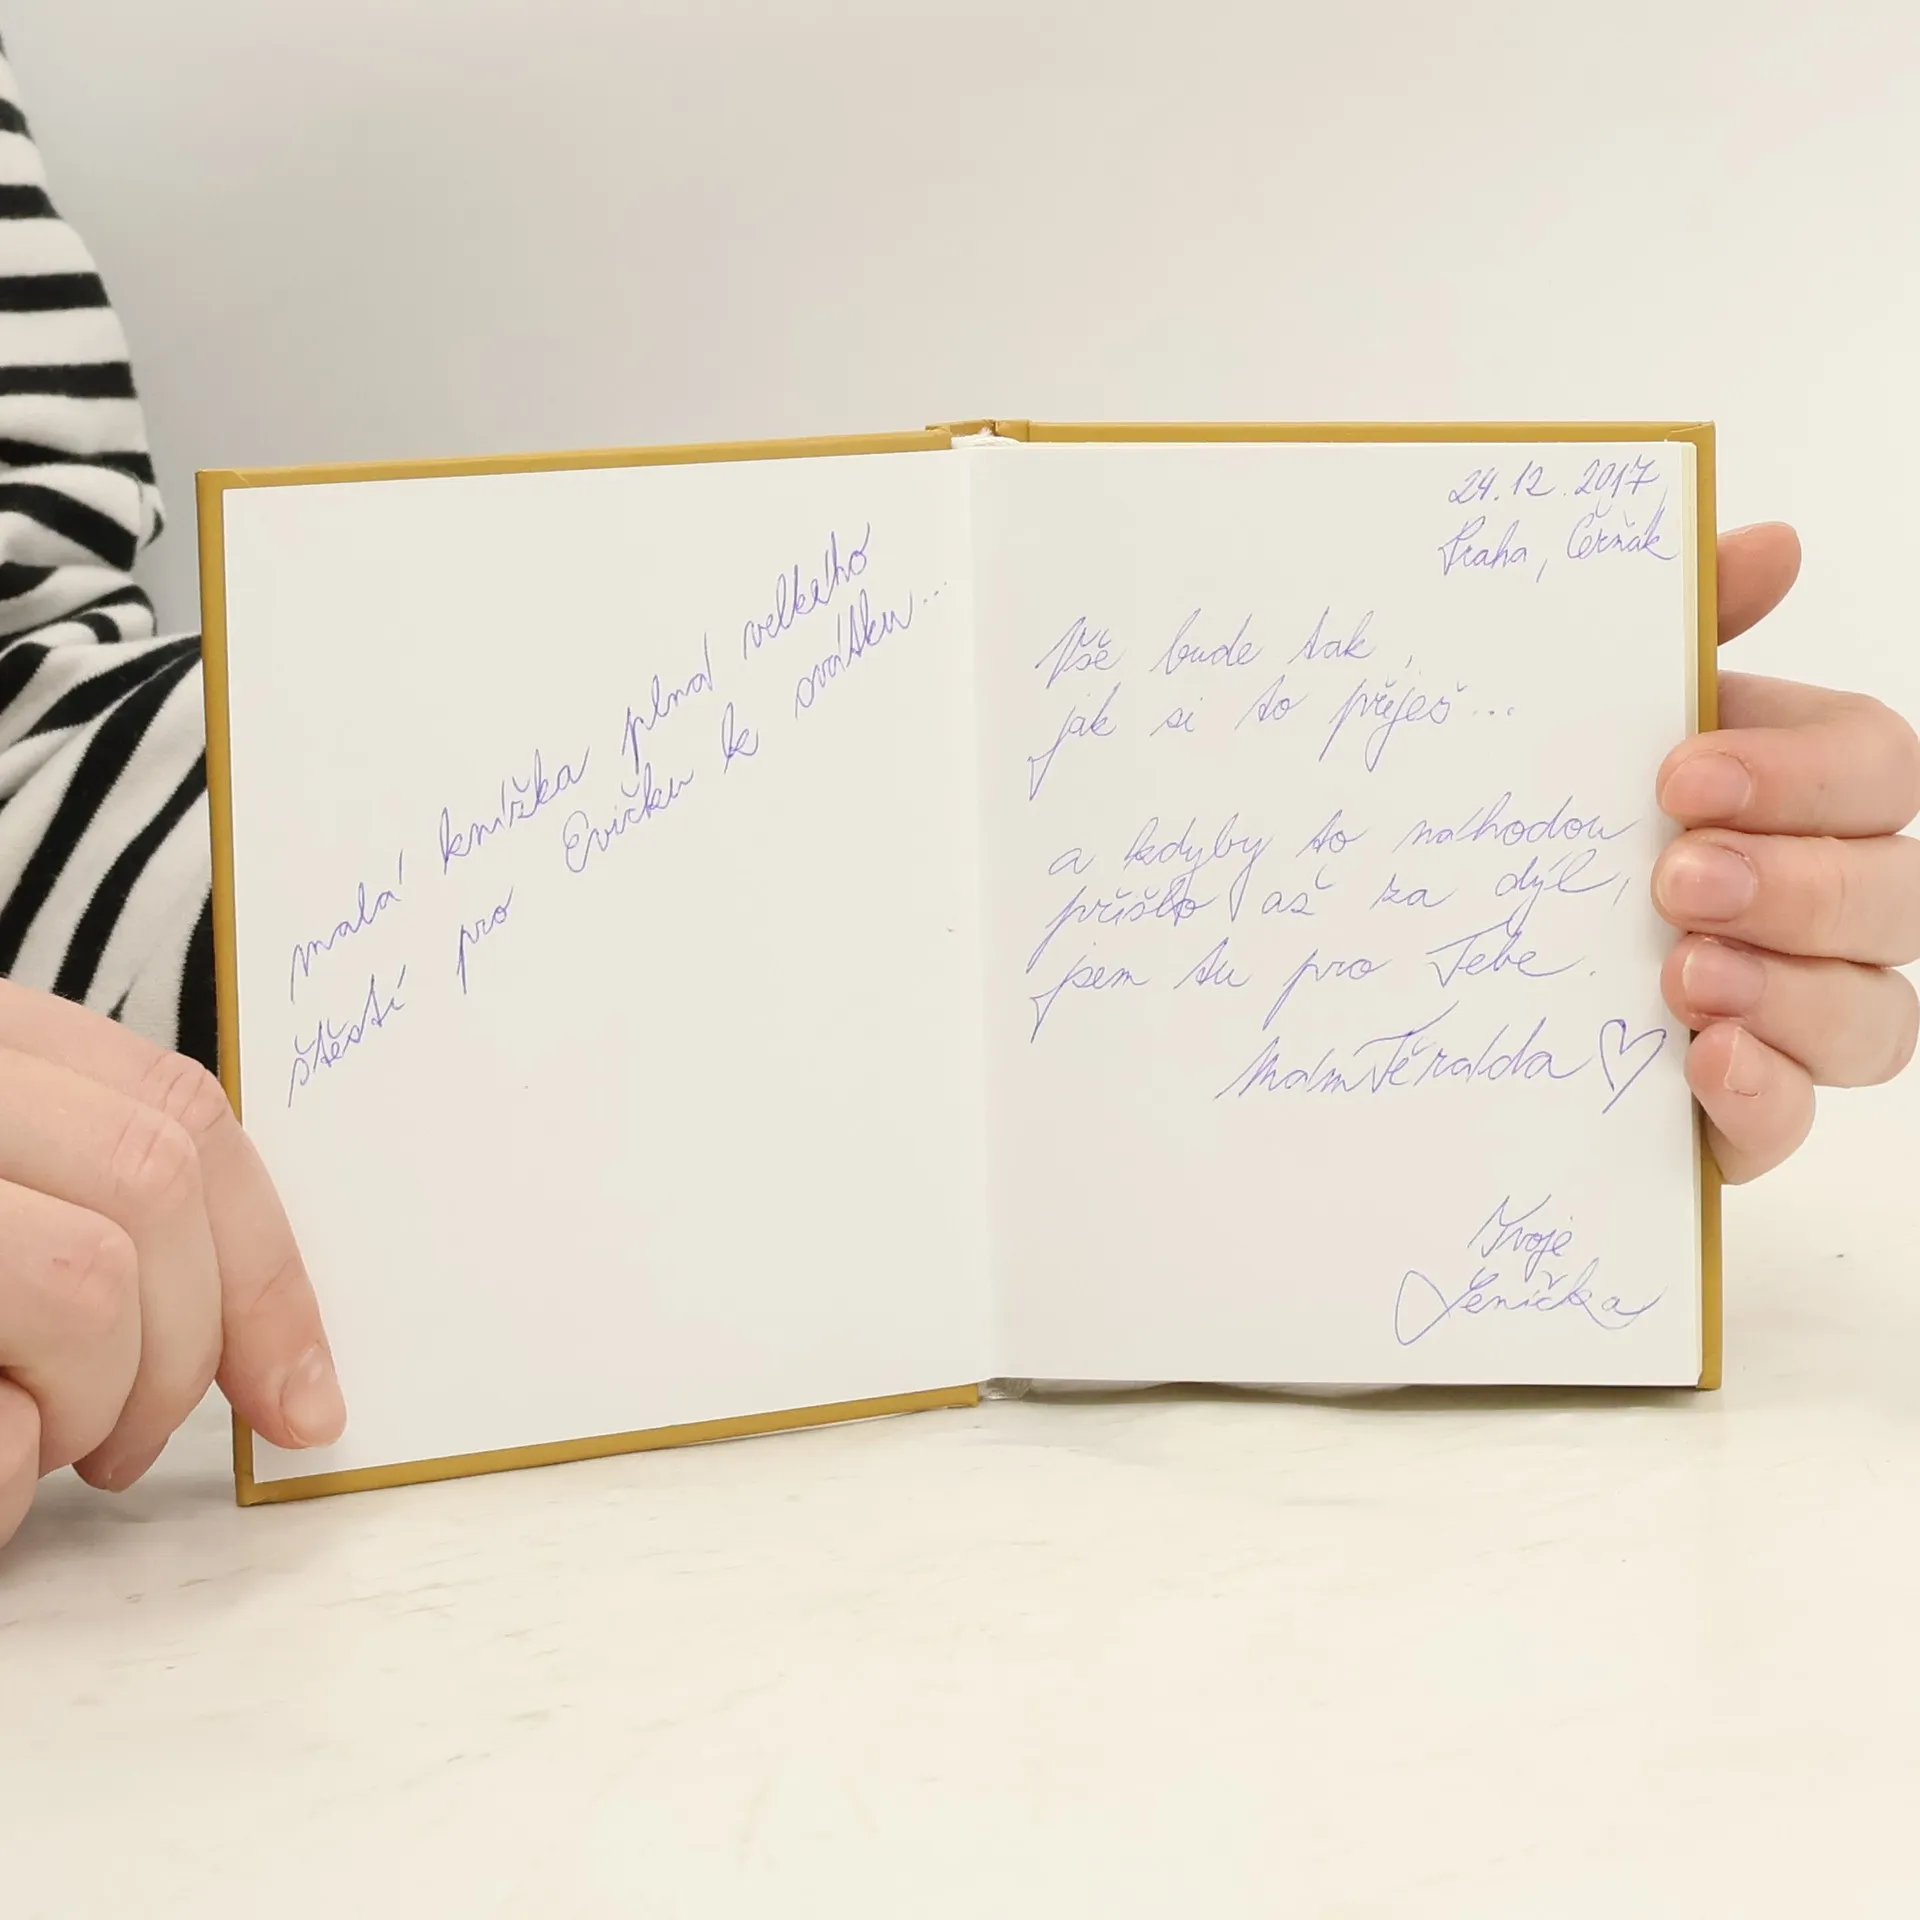 malá knížka plná velkého
štěstí pro Evičku k svátku...
24.12.2017
Praha, Čerňák
Vše bude tak,
jak si to přeješ...
a kdyby to náhodou
přišlo až za dýl,
jsem tu pro Tebe.
Mám Tě ráda ♡
Tvoje
Lenička